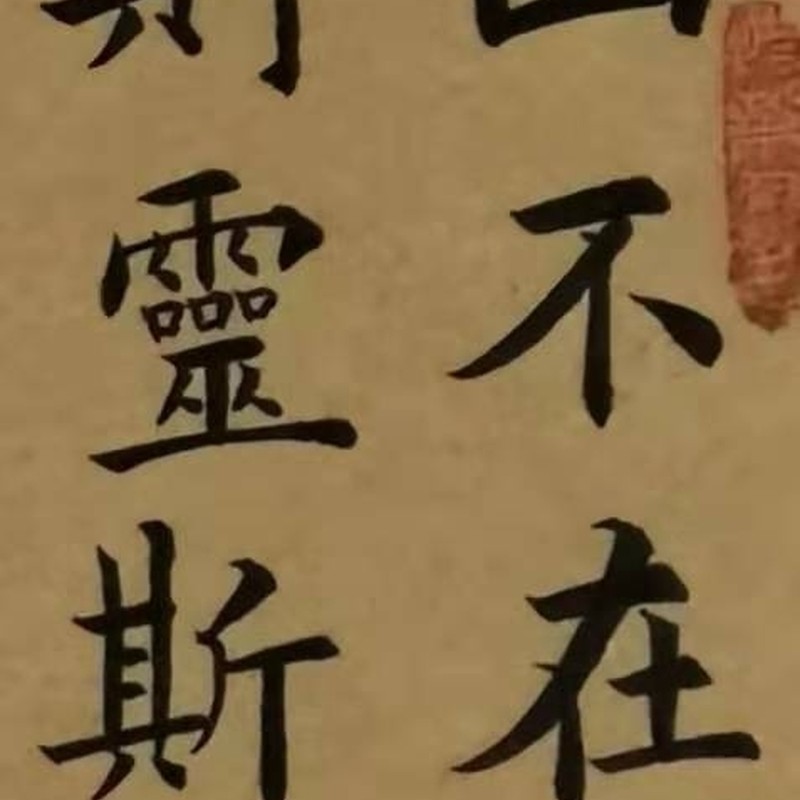 山不在
則靈斯